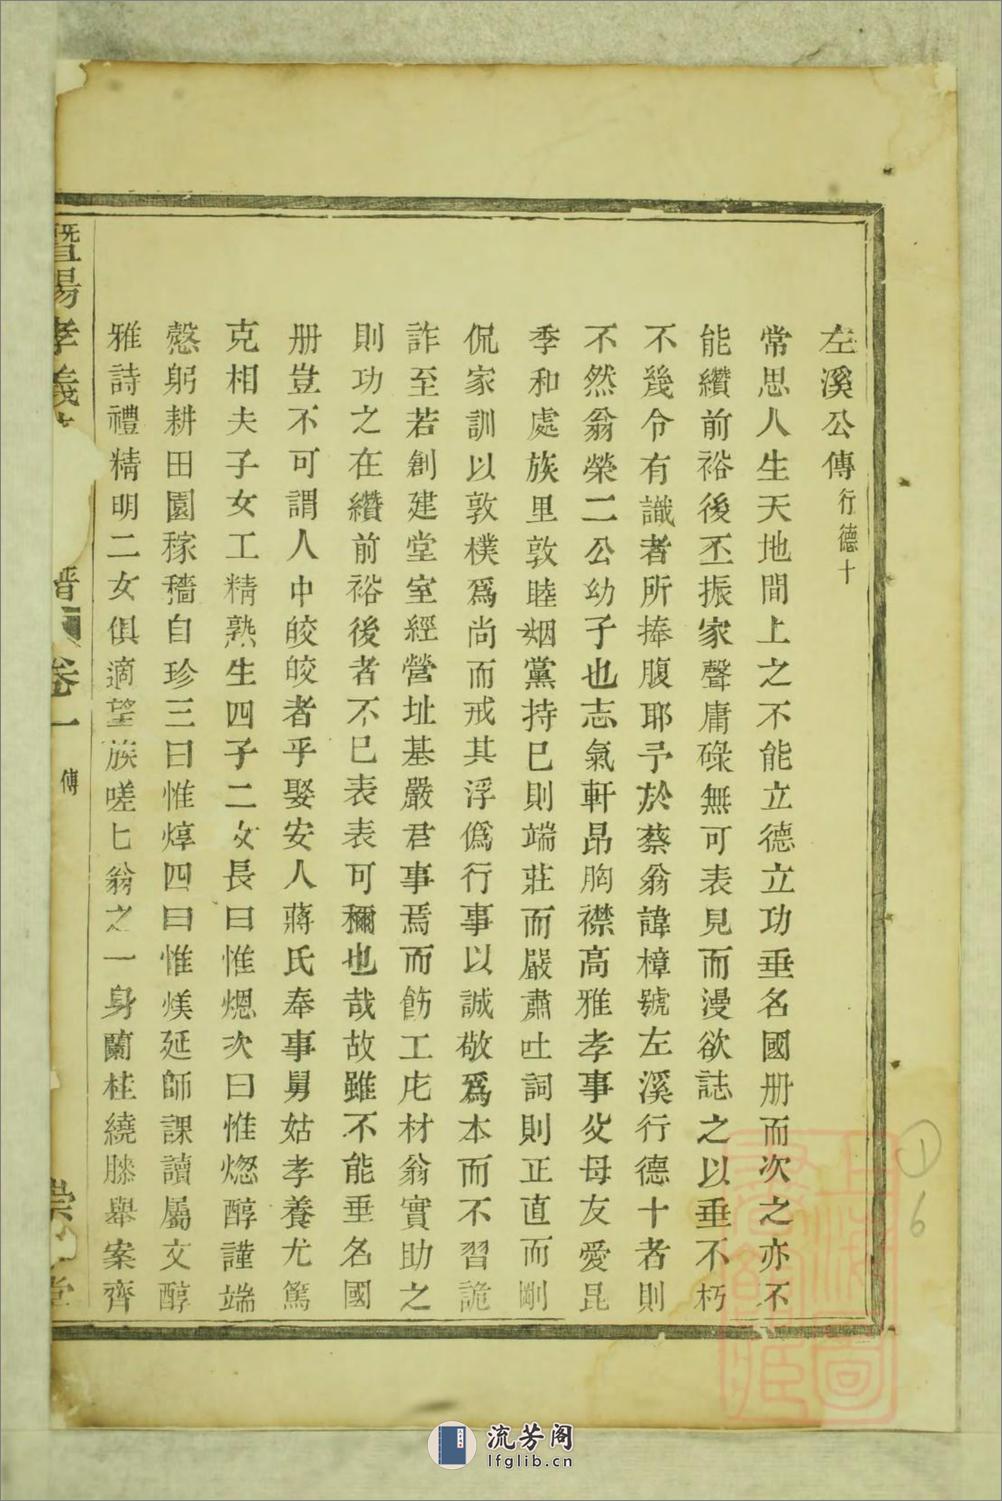 左溪公傳行德十
常思人生天地間上之不能立德立功垂名國册而次之亦不
能纘前裕後丕振家聲庸碌無可表見而漫欲誌之以垂不朽
不幾令有識者所捧腹耶予於蔡翁諱樟號左溪行德十者則
不然翁榮二公幼子也志氣軒昂胸襟高雅孝事父母友愛昆
季和處族里敦睦烟黨持巳則端莊而嚴肅吐詞則正直而剛
侃家訓以敦樸爲尚而戒其浮僞行事以誠敬爲本而不習詭
詐至若創建堂室經營址基嚴君事焉而飭工庀材翁實助之
則功之在纘前裕後者不巳表表可穪也哉故雖不能垂名國
册豈不可謂人中皎皎者乎娶安人蔣氏奉事舅姑孝養尤篤
克相夫子女工精熟生四子二女長曰惟熜次曰惟燃醇謹端
慤躬耕田園稼穡自珍三曰惟焞四曰惟煐延師課讀屬文醇
雅詩禮精明二女俱適望族嗟乜翁之一身蘭桂繞膝舉案齊
暨陽孝義
譜
卷一
傳
崇
堂
①
6
上海圖
書館藏
流芳阁
lfglib.cn